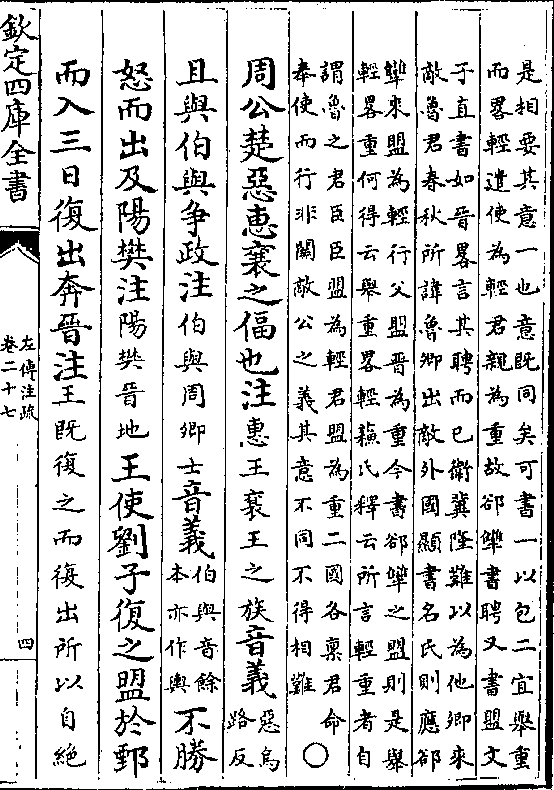 是相要其意一也意既同矣可書一以包二宜舉重
而畧輕遣使為輕君親為重故郤犫書聘又書盟文
子直書如晉畧言其聘而已衛冀隆難以為他卿來
敵魯君春秋所諱魯卿出敵外國顯書名氏則應郤
犫來盟為輕行父盟晉為重今書郤犫之盟則是舉
輕畧重何得云舉重畧輕蘓氏釋云所言輕重者自
謂魯之君臣臣盟為輕君盟為重二國各稟君命
奉使而行非關敵公之義其意不同不得相難〇
周公楚惡惠襄之偪也注惠王襄王之族音義惡烏路反
且與伯與争政注伯與周卿士音義伯與音餘本亦作輿不勝
怒而出及陽樊注陽樊晉地王使劉子復之盟於鄄
而入三日復出奔晉注王既復之而復出所以自絶
欽定四庫全書
左傳注疏
卷二十七
四